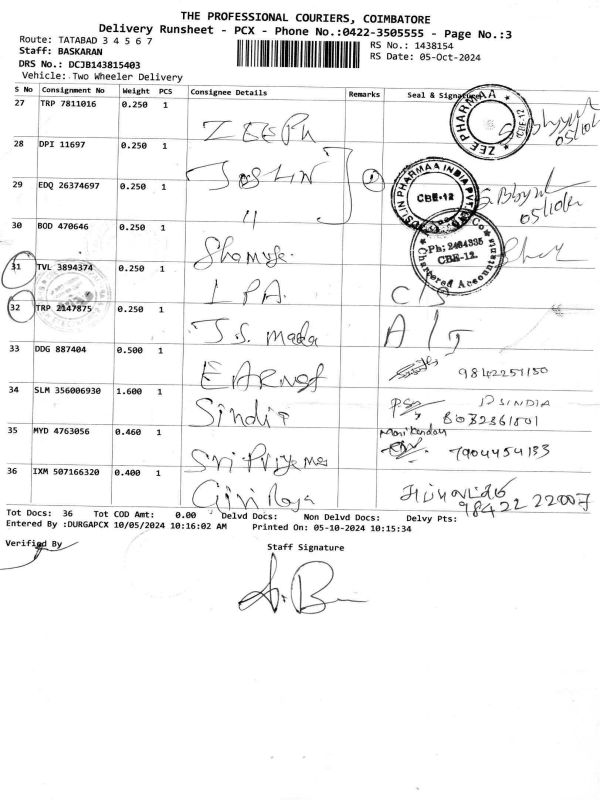 THE PROFESSIONAL COURIERS, COIMBATORE
Delivery Runsheet - PCX - Phone No.:0422-3505555 - Page No.:3
Route: TATABAD 3 4 5 6 7
RS No.: 1438154
Staff: BASKARAN
RS Date: 05-Oct-2024
DRS No.: DCJB143815403
Vehicle: Two Wheeler Delivery
S No Consignment No Weight PCS Consignee Details Remarks Seal & Signature
27 TRP 7811016 0.250 1
ZEE PHARMAA CBE-12
05/10/24
28 DPI 11697 0.250 1
JOSLIN 1
JOSLIN PHARMAA INDIA PVT LTD CBE-12
29 EDQ 26374697 0.250 1
"
05/10/24
30 BOD 470646 0.250 1
Ph: 2494335
CBE-12.
Chartered Accountants
31 TVL 3894374 0.250 1
C/S
32 TRP 2147875 0.250 1
J.S. A/T
33 DDG 887404 0.500 1
9842251150
34 SLM 356006930 1.600 1
Sindia INDIA
35 MYD 4763056 0.460 1
Sri Priya Manikandan
7904454133
36 IXM 507166320 0.400 1
98422 22007
Tot Docs: 36 Tot COD Amt: 0.00 Delvd Docs: Non Delvd Docs: Delvy Pts:
Entered By :DURGAPCX 10/05/2024 10:16:02 AM Printed On: 05-10-2024 10:15:34
Verified By
Staff Signature